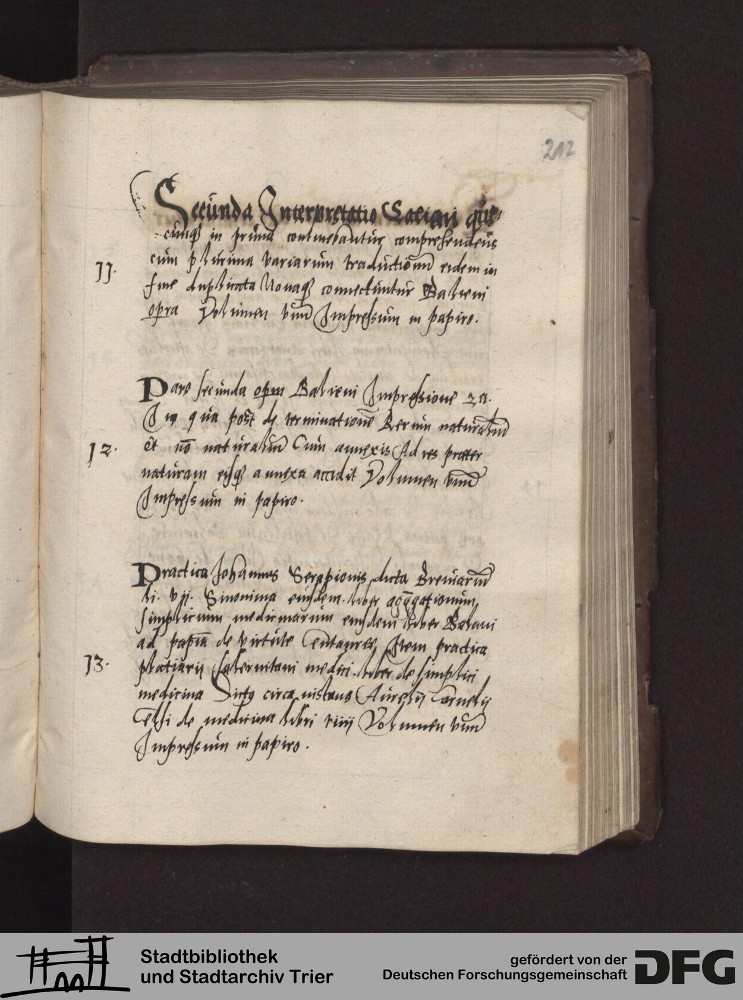 212
Secunda Interpretatio Galieni que
cunq in prima continebantur comprehendens
cum plurima variarum traductionu eidem in
fine duplicata Nonaq connectuntur Galieni
opera Volumen unu Impressum in papiro.
11.
Pars secunda operu Galieni Impressione 2a.
In qua post determinatione Rerum naturaliu
et no naturaliu Cum annexis Ad res preter
12.
naturam eisq annexa accidit Volumen unu
Impressum in papiro.
Practica Johannis Serapionis dicta Breviariu
li. vij. Sinonima eiusdem liber aggregationum
simplicium medicinarum eiusdem liber Galieni
ad papia de virtute Centauree Item practica
13.
platiarij salernitani medici. liber de simplici
medicina Dictq circa instans Aurelij Cornelij
Celsi de medicina libri viij Volumen unu
Impressum in papiro.
Stadtbibliothek
und Stadtarchiv Trier
gefördert von der
Deutschen Forschungsgemeinschaft
DFG